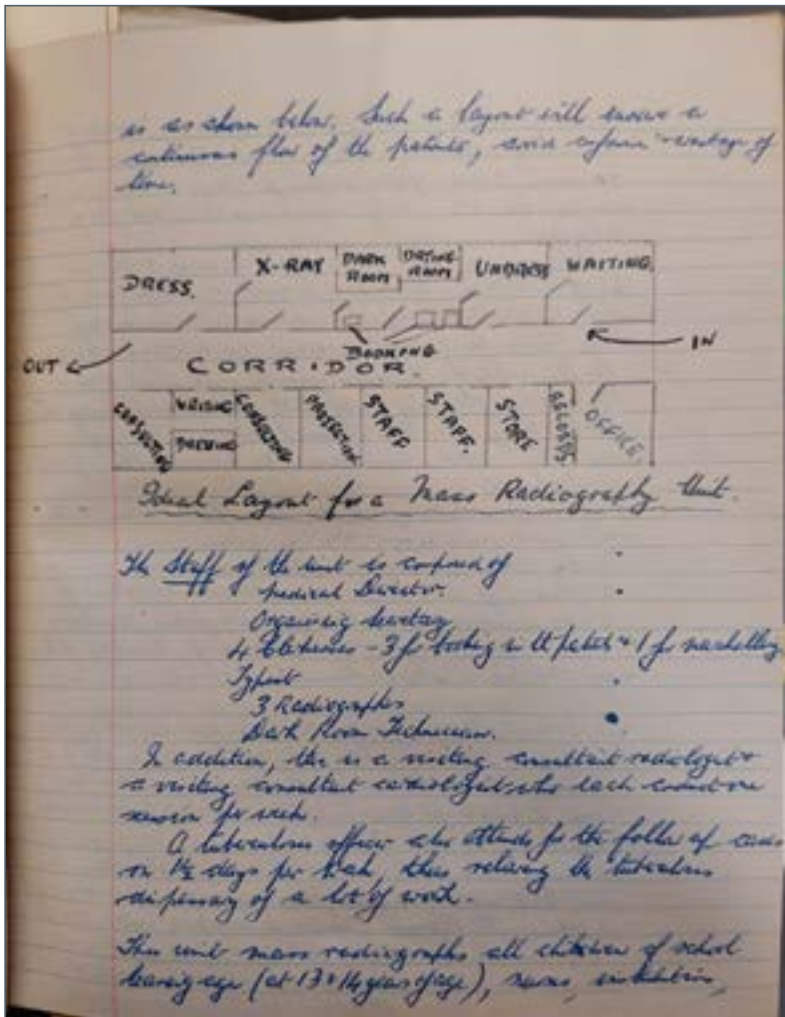 is as shown below. Such a layout will ensure a
continuous flow of the patients, avoid wastage of
time.
DRESS. X-RAY DARK ROOM DRYING ROOM UNDRESS WAITING.
BOOKING
OUT IN
CORRIDOR.
CONSULTING WAITING DRESSING CONSULTING PROJECTION STAFF STAFF. STORE RECORDS OFFICE.
Ideal Layout for a Mass Radiography Unit.
The Staff of the unit is composed of
Medical Director.
Organising Secretary
4 - 3 for booking in the patients + 1 for marshalling
Typist
3 Radiographers
Dark Room Technician.
In addition, there is a visiting consultant radiologist +
a visiting consultant cardiologist who each conduct one
session per week.
A tuberculosis officer also attends for the follow up cases
on 1½ days per week, thus relieving the tuberculosis
dispensary of a lot of work.
This unit mass radiographs all children of school
leaving age (at 13 + 14 years of age), nurses, institutions,